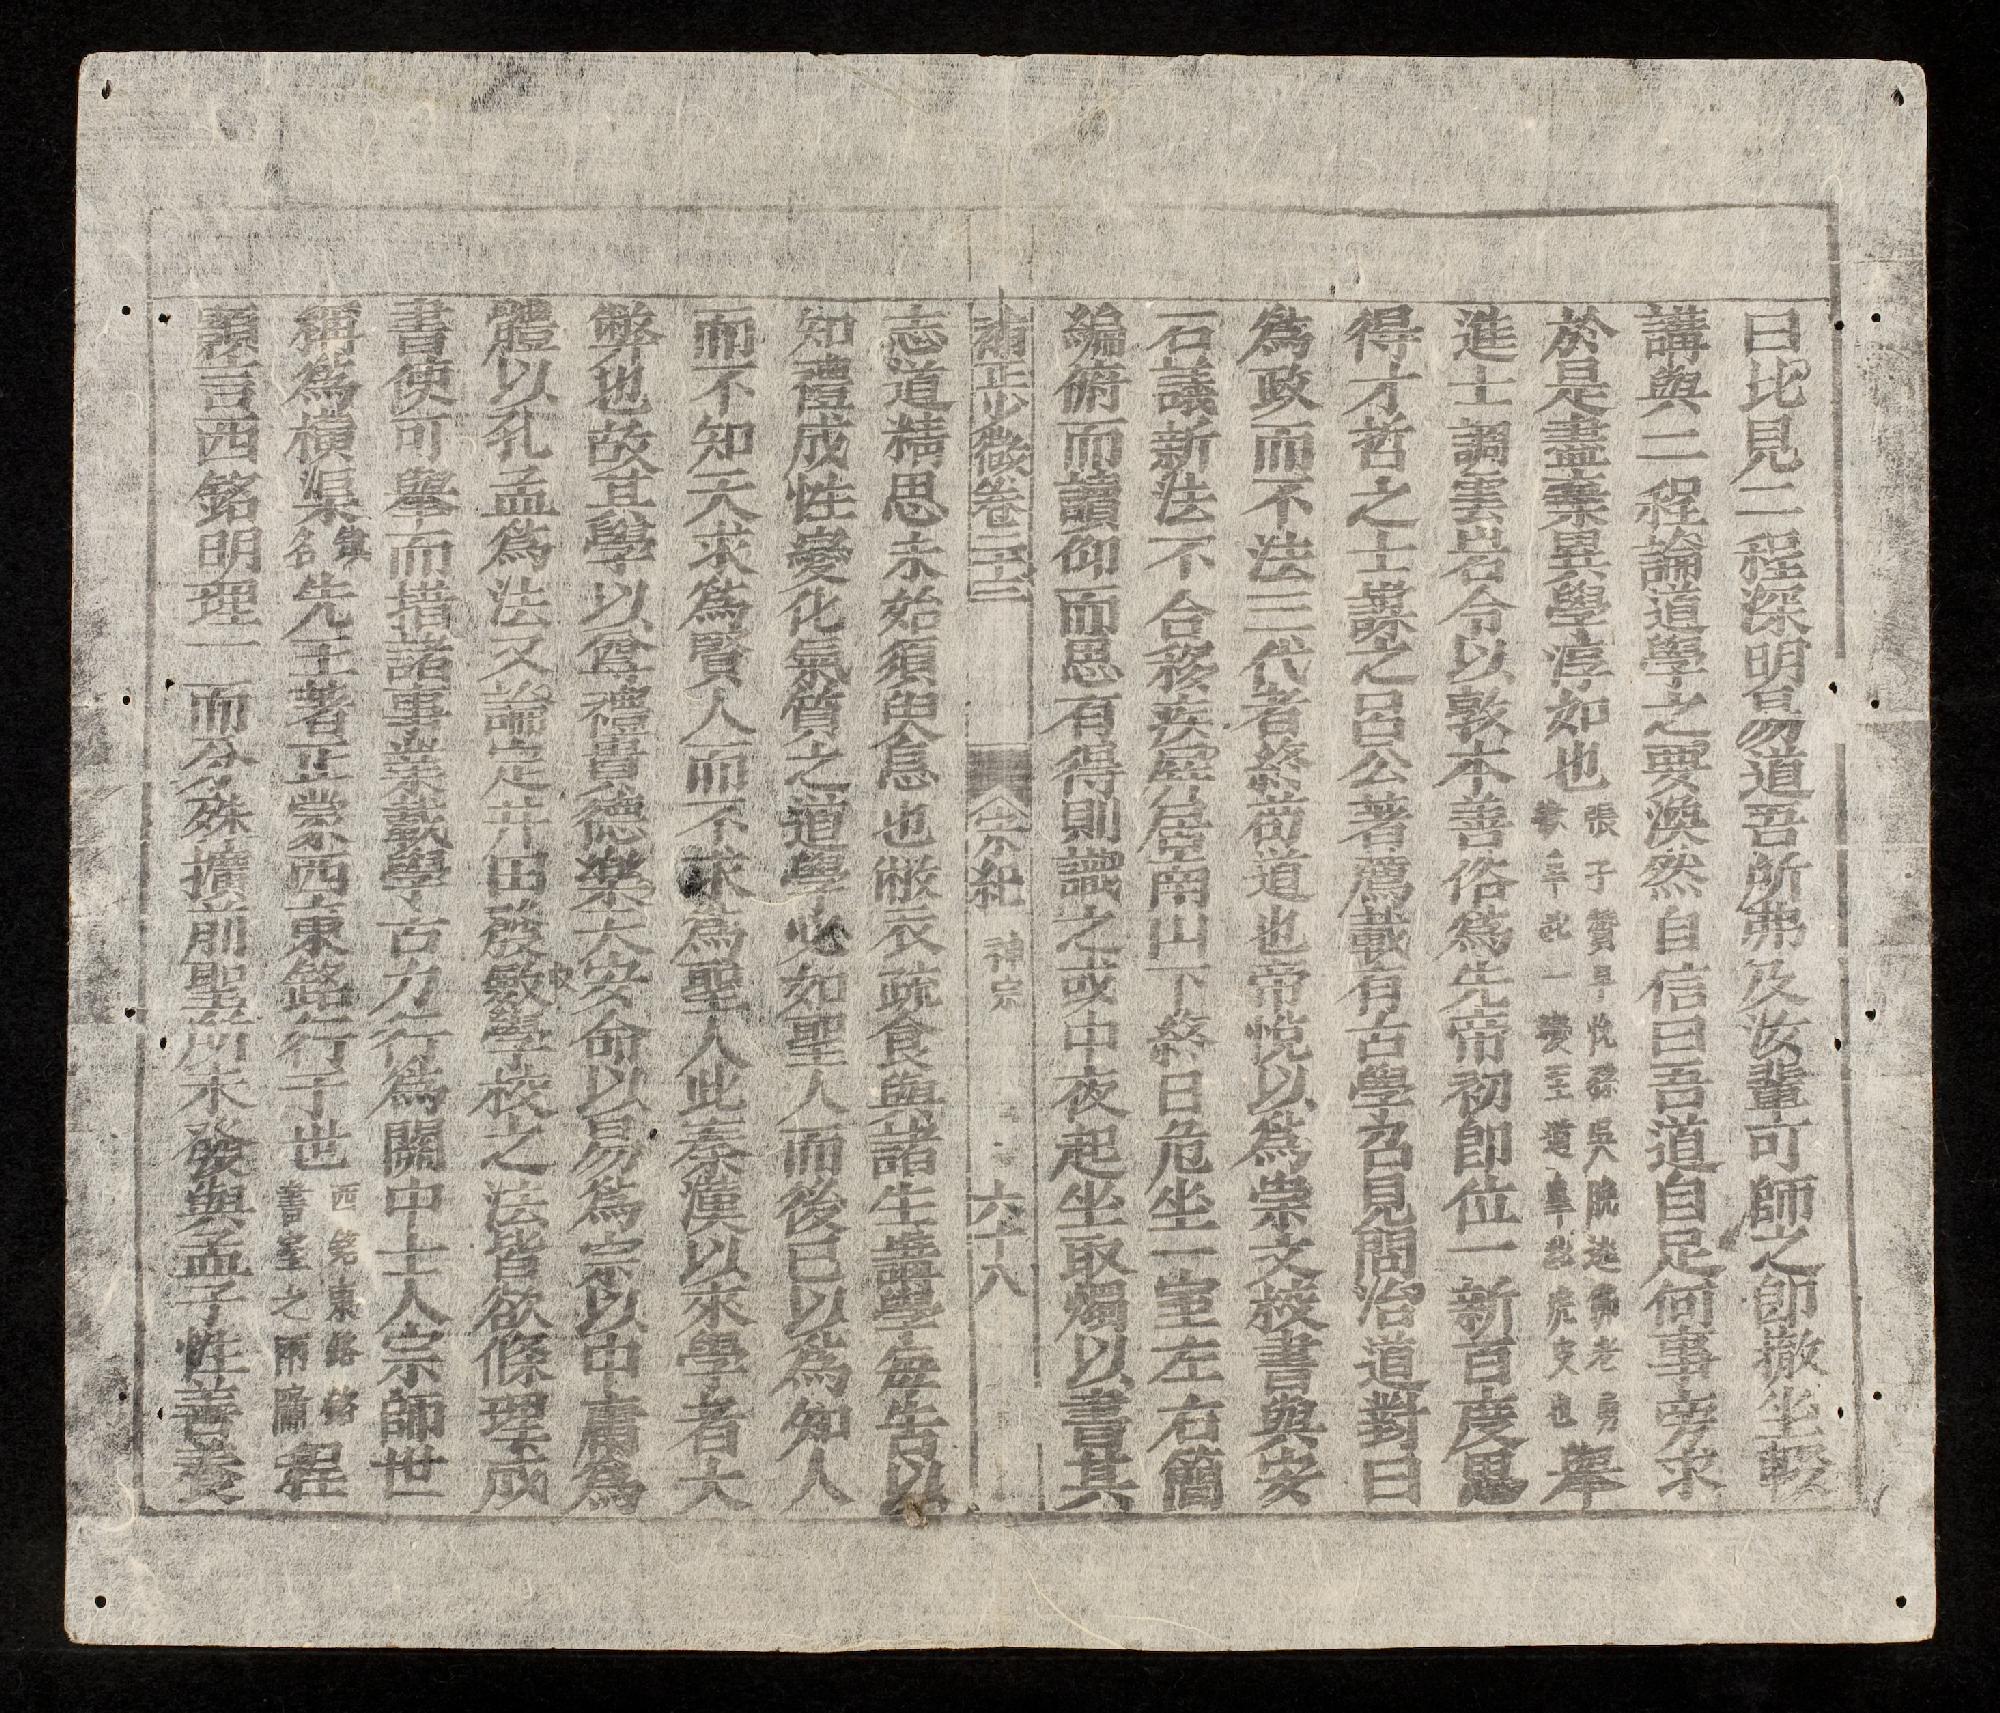 曰比見二程深明易道吾所弗及汝輩可師之即撤坐輟
講與二程論道學之要渙然自信曰吾道自足何事旁求
於是盡棄異學淳如也張子贊早悅孫吳脫逃佛老勇撤皐比一變至道皐比虎皮也舉
進士調雲岩令以敦本善俗爲先帝初卽位一新百度思
得才哲之士謀之呂公著薦載有古學召見問治道對曰
爲政而不法三代者終苟道也帝悅以爲崇文校書與安
石議新法不合移疾屛居南山下終日危坐一室左右簡
編俯而讀仰而思有得則識之或中夜起坐取燭以書其
補正少微卷二十三 宋紀 神宗 六十八
志道精思未始須臾息也敝衣疏食與諸生講學每告以
知禮成性變化氣質之道學必如聖人而後已以爲知人
而不知天求爲賢人而不求爲聖人此秦漢以來學者大
弊也故其學以尊禮貴德樂天安命以易爲宗以中庸爲
體以孔孟爲法又論定井田發斂學校之法皆欲條理成
書使可舉而措諸事業載學古力行爲關中士人宗師世
稱爲橫渠鎭名先生著正蒙西東銘行于世西銘東銘銘書室之兩牖程
顥言西銘明理一而分殊擴前聖所未發與孟子性善養